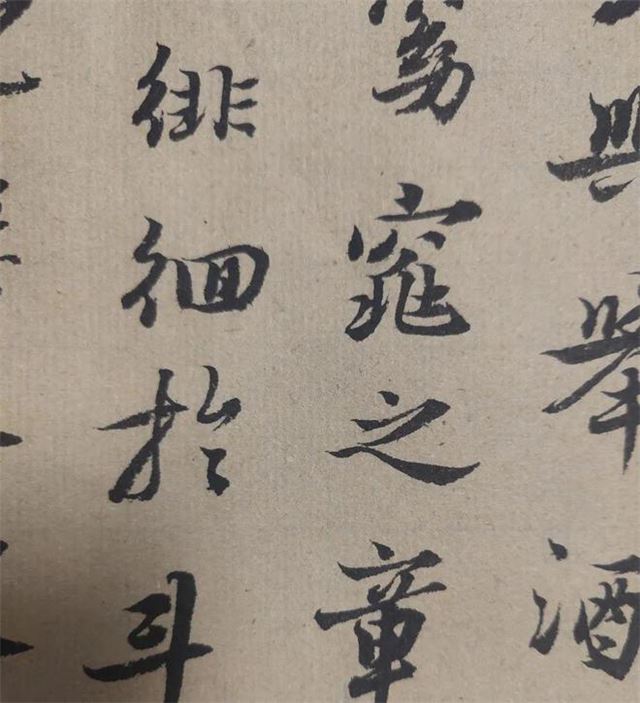 興舉酒
窈窕之章
徘徊於斗